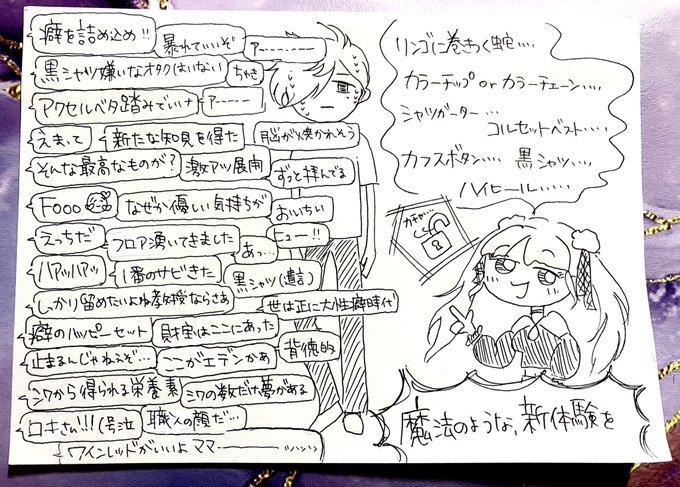 癖を詰め込め!!
暴れていいぞ
ア--------
黒シャツ嫌いなオタクはいない
ちゃき
アクセルベタ踏みでいけ
ア-----
えまって
新たな知見を得た
脳が焼かれそう
そんな最高なものが?
激アツ展開
ずっと拝んでる
Fooo
なぜか優しい気持ちが
おいちい
えっちだ
フロア湧いてきました
ヒュー!!
あっ…
ハアッハアッ
1番のサビきた
黒シャツ(遺言)
しっかり留めたいよね教授ならさあ
世は正に大性癖時代
癖のハッピーセット
財宝はここにあった
背徳的
止まるんじゃねえぞ…
ここがエデンかぁ
シワから得られる栄養素
シワの数だけ夢がある
ロキさん!!!(号泣
職人の顔だ…
ワインレッドがいいよママ
リンゴに巻きつく蛇…
カラーチップorカラーチェーン…
シャツガーター…
コルセットベスト…
カフスボタン… 黒シャツ…
ハイヒール……
ガチャ…
魔法のような、新体験を